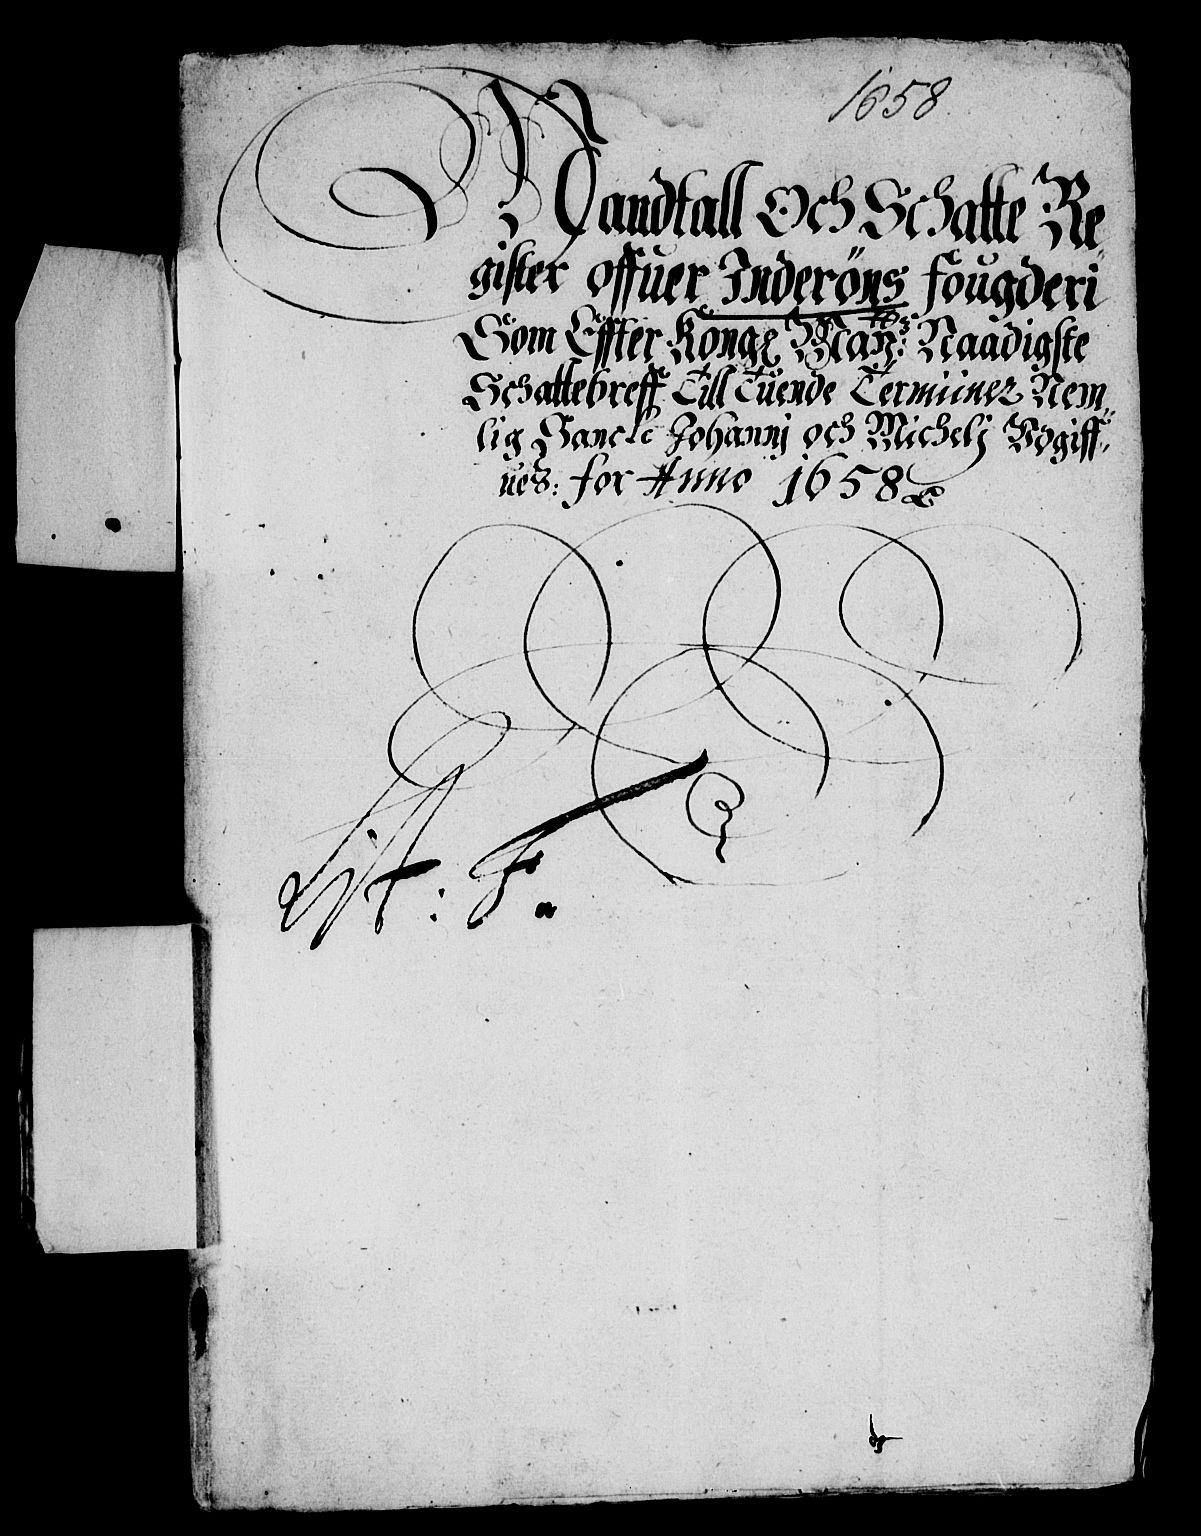 1658
Mandtall Och Schatte Re-
gister offuer Inderöns fougderi
Som Effter Kong: May:tz Naadigste
Schattebreff Till Tuende Terminer Nem-
lig Sancte Johannj och Michelj Udgiff-
ues: for Anno 1658
Lit: F.